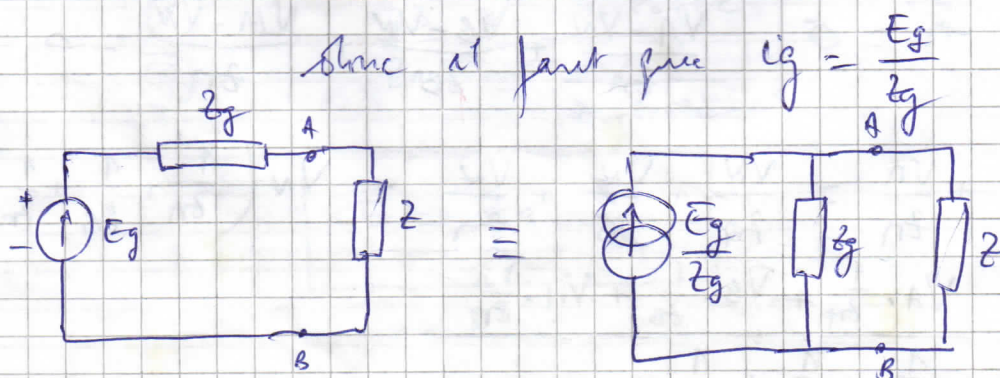 Donc il faut que ig = Eg / Zg
Zg
A
+
-
Eg
Z
B
≡
A
Eg / Zg
Zg
Z
B